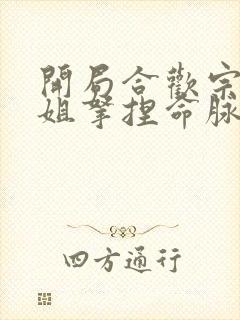 開局合歡宗
姐拏捏命脉
四方通行